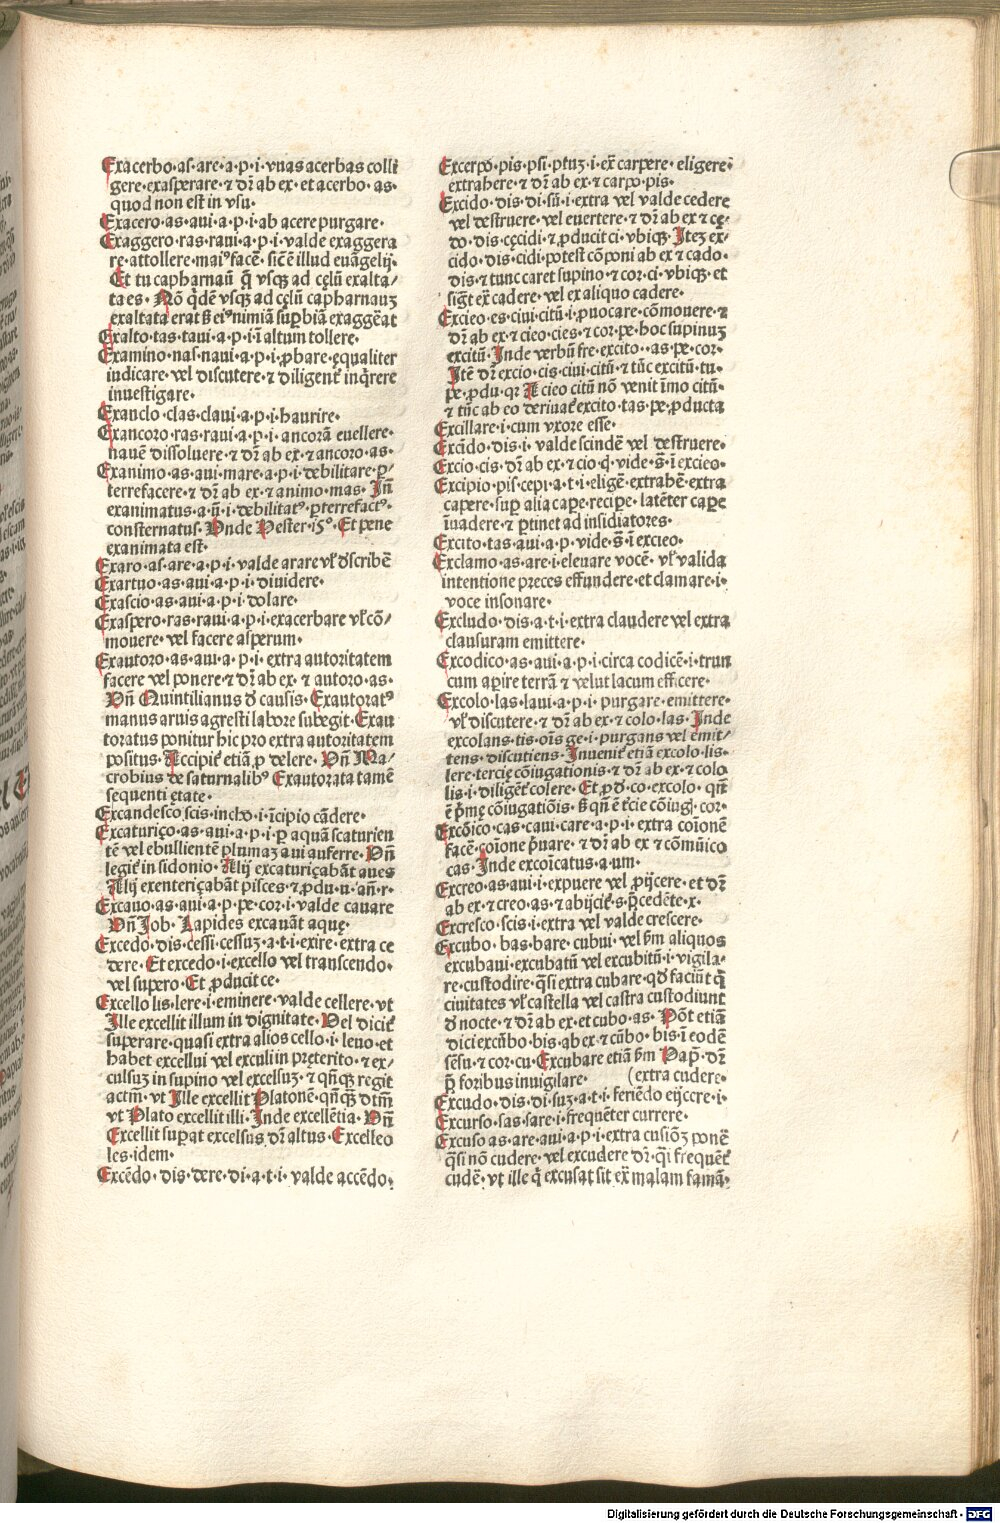 Exacerbo·as·are·a·p·i·vuas acerbas colli
gere·exasperare·⁊ dr̄ ab ex·et acerbo·as·
quod non est in vsu·
Exacero·as·aui·a·p·i·ab acere purgare·
Exaggero·ras·raui·a·p·i·valde exaggera
re·attollere·maiꝰ facē· sic̄ ē illud euāgelij·
Et tu capharnaū q̄ vsqꝫ ad cęlū exalta/
ta es· Nō q̄dē vsqꝫ ad cęlū capharnauꝫ
exaltata erat s̄ eiꝰ nimiā suꝑbiā exaggēat
Exalto·tas·taui·a·p·i·ī altum tollere·
Examino·nas·naui·a·p·i·ꝓbare·ęqualiter
iudicare·vel discutere·⁊ diligent̄ inq̄rere
inuestigare·
Exanclo·clas·claui·a·p·i·haurire·
Exancoro·ras·raui·a·p·i·ancorā euellere·
nauē dissoluere·⁊ dr̄ ab ex·⁊ ancoro·as·
Exanimo·as·aui·mare·a·p·i·debilitare·ꝑ/
terrefacere·⁊ dr̄ ab ex·⁊ animo·mas· Jn̄
exanimatus·a·ū·i·debilitatꝰ·ꝑterrefactꝰ·
consternatus· Vnde Hester·i5°· Et pene
exanimata est·
Exaro·as·are·a·p·i·valde arare vl̄ d̄scribē
Exartuo·as·aui·a·p·i·diuidere·
Exascio·as·aui·a·p·i·dolare·
Exaspero·ras·raui·a·p·i·exacerbare vl̄ cō/
mouere·vel facere asperum·
Exautoro·as·aui·a·p·i·extra autoritatem
facere vel ponere·⁊ dr̄ ab ex·⁊ autoro·as·
Vn̄ Quintilianus d̄ causis· Exautoratꝰ
manus aruis agresti labore subegit· Exau
toratus ponitur hic pro extra autoritatem
positus· Accipit̄ etiā ꝓ delere· Vn̄ Ma/
crobius de saturnalibꝰ Exautorata tamē
sequenti ętate·
Excandesco scis·incho·i·īcipio cādere·
Excaturiço·as·aui·a·p·i·ꝑ aquā scaturien
tē vel ebullientē plumaꝫ aui auferre· Vn̄
legit̄ in sidonio· Alij excaturiçabāt aues
Alij exenteriçabāt pisces·⁊ ꝓdu·u·an̄·r·
Excauo·as·aui·a·p·pe·cor·i·valde cauare
Vn̄ Job· Lapides excauāt aquę·
Excedo·dis·cessi·cessuꝫ·a·t·i·exire·extra ce
dere· Et excedo·i·excello vel transcendo·
vel supero· Et ꝓducit ce·
Excello lis·lere·i·eminere·valde cellere·vt
Jlle excellit illum in dignitate· Vel dicit̄
superare·quasi extra alios cello·i·leuo·et
habet excellui vel exculi in pręterito·⁊ ex/
culsuꝫ in supino vel excelsuꝫ·⁊ qn̄qꝫ regit
actm̄·vt Jlle excellit Platonē·qn̄qꝫ dtm̄
vt Plato excellit illi· Jnde excellētia· Vn̄
Excellit suꝑat excelsus dr̄ altus· Excelleo
les·idem·
Excēdo·dis·dere·di·a·t·i·valde accēdo·
Excerpo·pis·psi·ptuꝫ·i·ex̄ carpere·eligere·
extrahere·⁊ dr̄ ab ex·⁊ carpo·pis·
Excido·dis·di·sū·i·extra vel valde cedere
vel destruere·vel euertere·⁊ dr̄ ab ex ⁊ cę
do·dis·cęcidi·⁊ ꝓducit ci·vbiqꝫ· Jteꝫ ex/
cido·dis·cidi·potest cōponi ab ex ⁊ cado·
dis·⁊ tunc caret supino·⁊ cor·ci·vbiqꝫ·et
siḡt ex̄ cadere·vel ex aliquo cadere·
Excieo·es·ciui·citū·i·ꝓuocare·cōmouere·⁊
dr̄ ab ex·⁊ cieo·cies·⁊ cor·pe·hoc supinuꝫ
excitū· Jnde verbū fre·excito··as·pe·cor·
Jtē dr̄ excio·cis·ciui·citū·⁊ tūc excitū·tu·
pe·ꝓdu·qr̄ A cieo citū nō venit īmo citū·
⁊ tūc ab eo deriuat̄ excito·tas·pe·ꝓducta
Excillare·i·cum vxore esse·
Excīdo·dis·i·valde scindē vel destruere·
Excio·cis·dr̄ ab ex·⁊ cio·q̄·vide·s̄·ī excieo·
Excipio·pis·cepi·a·t·i·eligē·extrahē·extra
capere·suꝑ alia caꝑe·reciꝑe·latēter caꝑe
īuadere·⁊ ꝑtinet ad insidiatores·
Excito·tas·aui·a·p·vide·s̄·ī excieo·
Exclamo·as·are·i·eleuare vocē·vl̄ valida
intentione preces effundere·et clamare·i·
voce insonare·
Excludo·dis·a·t·i·extra claudere vel extra
clausuram emittere·
Excodico·as·aui·a·p·i·circa codicē·i·trun
cum aꝑire terrā ⁊ velut lacum efficere·
Excolo·las·laui·a·p·i·purgare·emittere·
vl̄ discutere·⁊ dr̄ ab ex·⁊ colo·las· Jnde
excolans·tis·oīs ge·i·purgans vel emit/
tens·discutiens· Jnuenit̄ etiā excolo·lis·
lere·tercię cōiugationis·⁊ dr̄ ab ex·⁊ colo
lis·i·diligēt̄ colere· Et ꝓd̄·co·excolo·qn̄
ē p̄mę cōiugatiōis· s̄ qn̄ ē t̄cie cōiuḡ· cor·
Excōico·cas·caui·care·a·p·i·extra coīonē
facē·coīone p̄uare·⁊ dr̄ ab ex ⁊ cōmūico
cas· Jnde excoīcatus·a·um·
Excreo·as·aui·i·expuere vel ꝓijcere·et dr̄
ab ex·⁊ creo·as·⁊ abijcit̄·s·p̄cedēte·x·
Excresco·scis·i·extra vel valde crescere·
Excubo·bas·bare·cubui·vel s̄m aliquos
excubaui·excubatū vel excubitū·i·vigila/
re·custodire·q̄si extra cubare·qd̄ faciūt q̄
ciuitates vl̄ castella vel castra custodiunt
d̄ nocte·⁊ dr̄ ab ex·et cubo·as· Pōt etiā
dici excūbo·bis·ab ex·⁊ cūbo·bis·ī eodē
sēsu·⁊ cor·cu· Excubare etiā s̄m Pap̄·dr̄
p̄ foribus inuigilare· (extra cudere·
Excudo·dis·di·suꝫ·a·t·i·feriēdo eijcere·i·
Excurso·sas·sare·i·frequēter currere·
Excuso·as·are·aui·a·p·i·extra cusiōꝫ ponē
q̄si nō cudere·vel excudere dr̄·q̄i frequēt̄
cudē·vt ille q̄ excusat sit ex̄ malam famā·
Digitalisierung gefördert durch die Deutsche Forschungsgemeinschaft - DFG